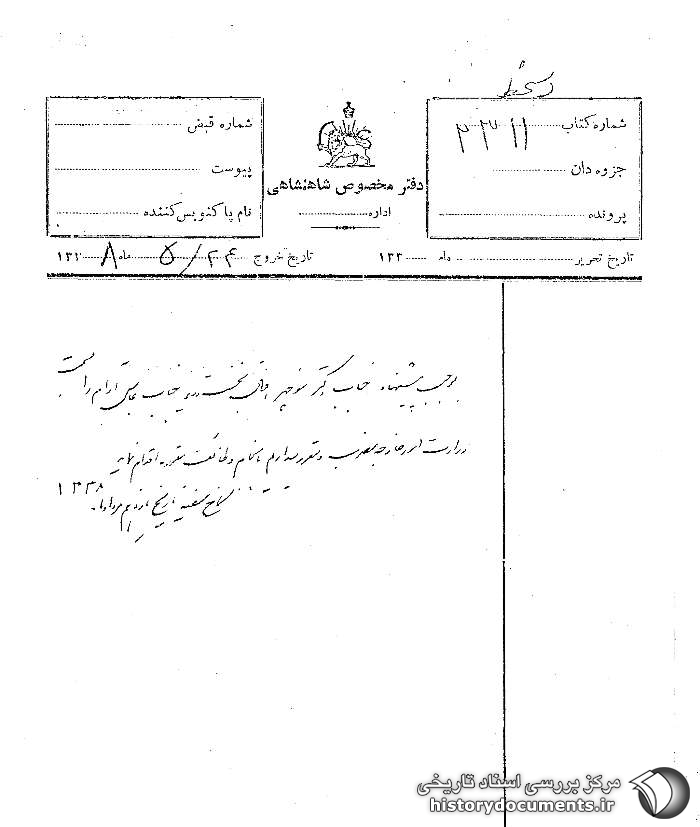 شماره کتاب ۲۳۱۱
جزوه دان
پرونده
دفتر مخصوص شاهنشاهی
اداره
شماره قبض
پیوست
نام پاکنویس کننده
تاریخ تحریر ماه ۱۳۳
تاریخ خروج ۲۴/۵ ماه ۱۳۳۸
بموجب پیشنهاد جناب دکتر منوچهر اقبال نخست وزیر جناب عباس آرام را بسمت
وزارت امور خارجه منصوب و مقرر میداریم بانجام وظائف مقرره اقدام نماید
کاخ سفید بتاریخ مرداد ماه ۱۳۳۸
مرکز بررسی اسناد تاریخی
historydocuments.ir